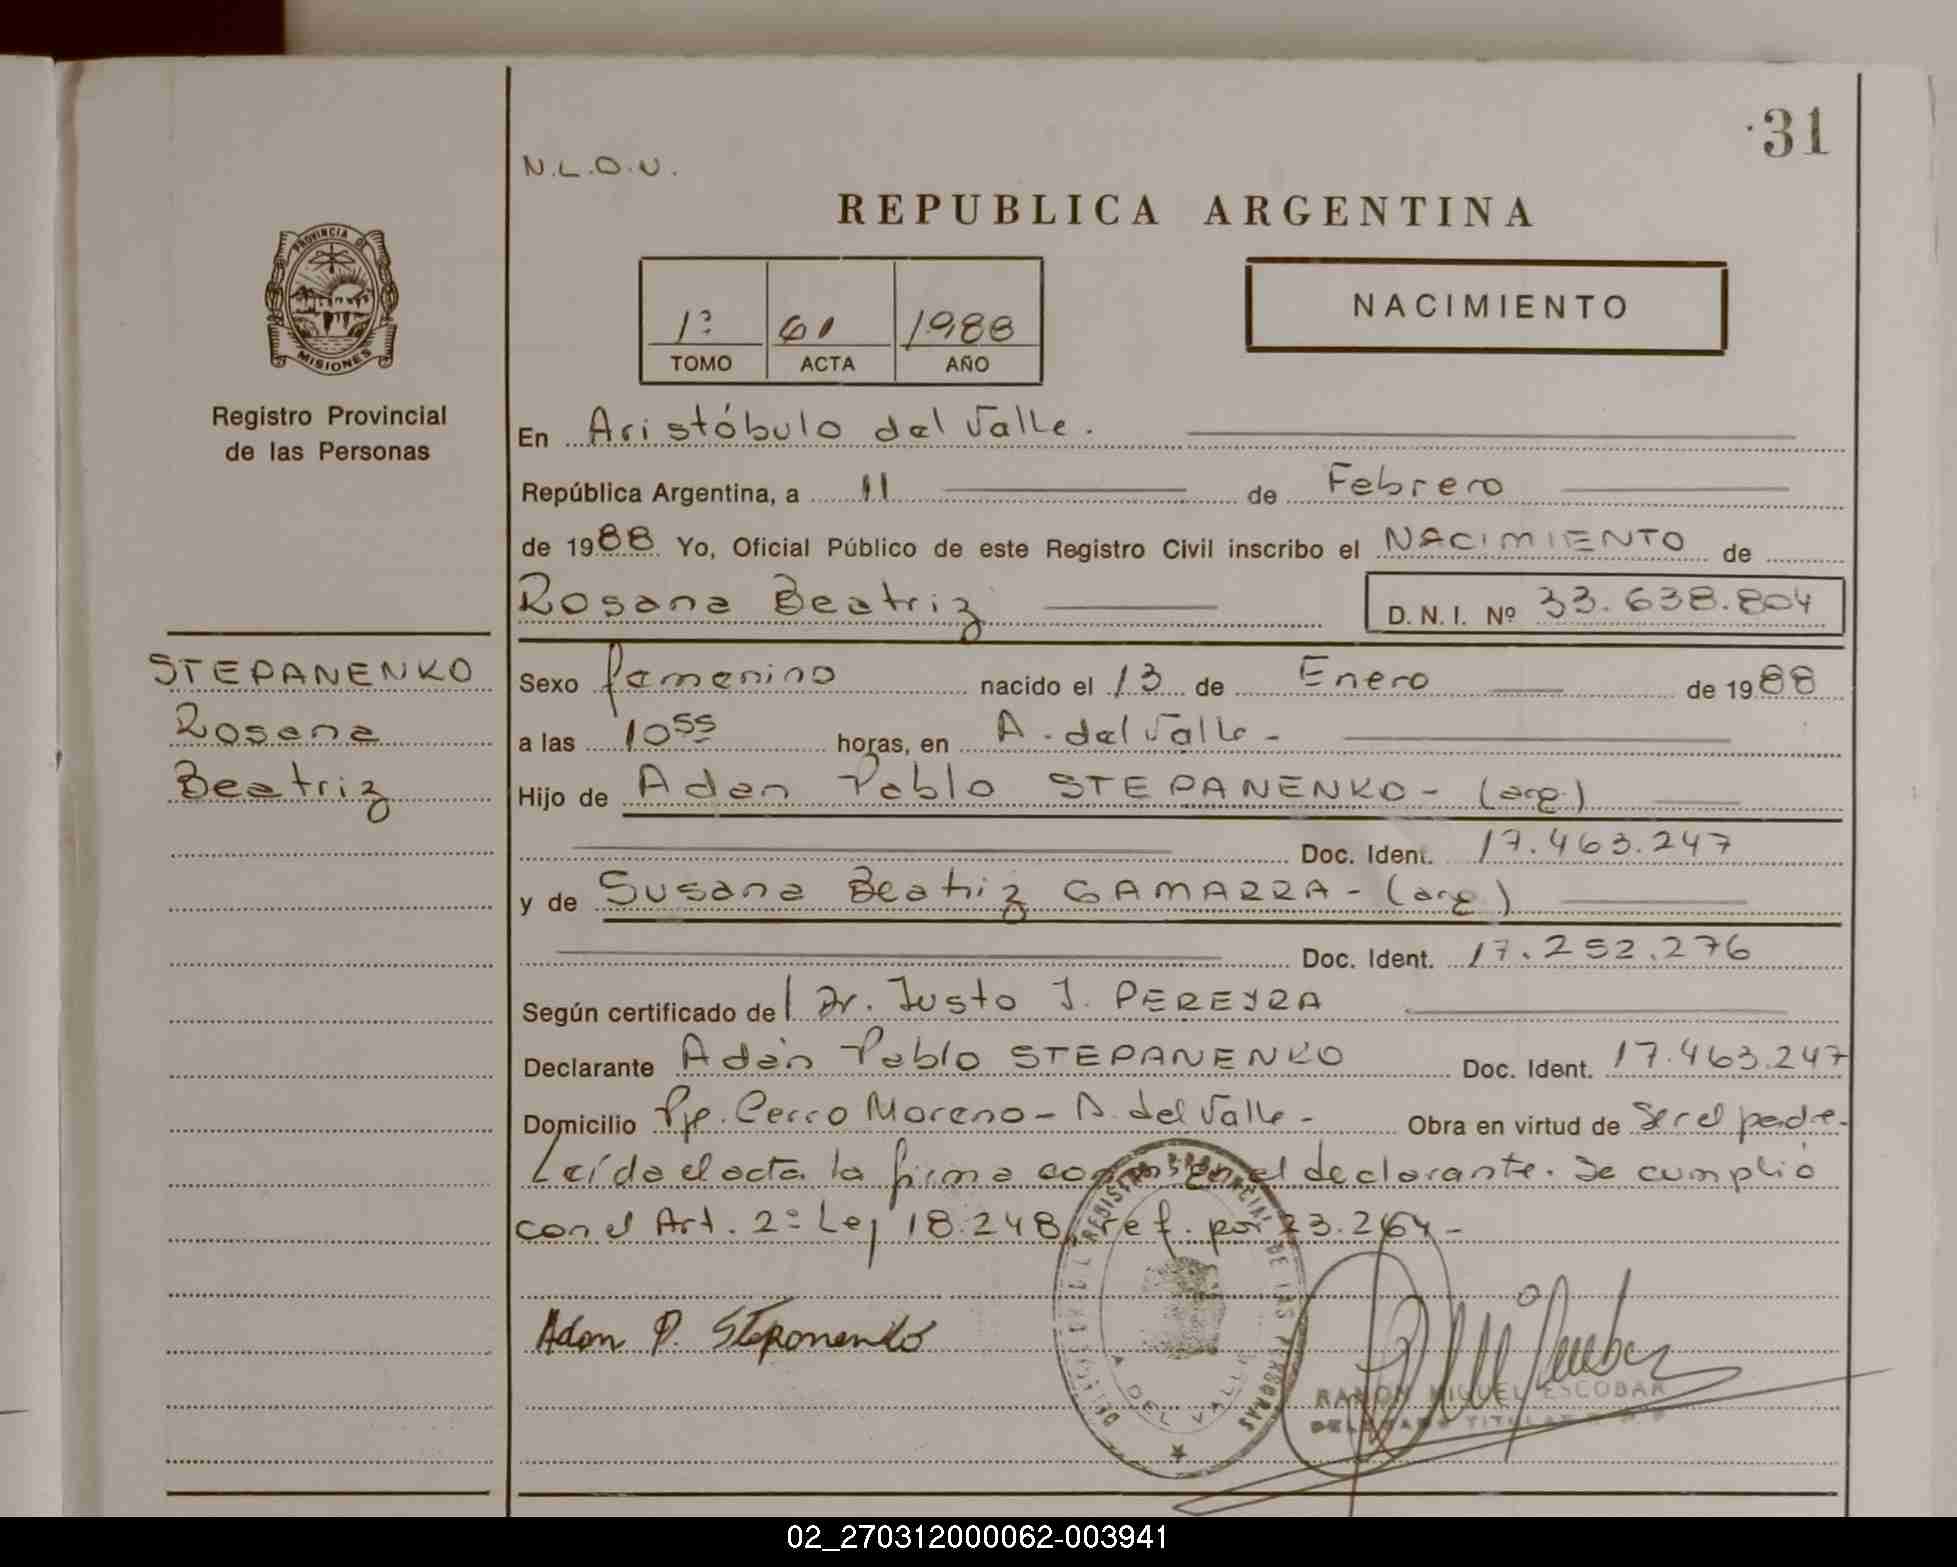 31
N.L.O.U.
REPUBLICA ARGENTINA
PROVINCIA DE
MISIONES
1º 61 1988
TOMO ACTA AÑO
NACIMIENTO
Registro Provincial
de las Personas
En Aristóbulo del Valle.
República Argentina, a 11 de Febrero
de 1988 Yo, Oficial Público de este Registro Civil inscribo el NACIMIENTO de
Rosana Beatriz D. N. I. Nº 33.638.804
STEPANENKO
Rosana
Beatriz
Sexo femenino nacido el 13 de Enero de 1988
a las 10 55 horas, en A. del Valle -
Hijo de Adan Pablo STEPANENKO - (arg)
Doc. Ident. 17.463.247
y de Susana Beatriz GAMARRA - (arg)
Doc. Ident. 17.252.276
Según certificado de Dr. Justo J. PEREYRA
Declarante Adán Pablo STEPANENKO Doc. Ident. 17.463.247
Domicilio Pje. Cerro Moreno - A. del Valle - Obra en virtud de Ser el padre.
Leída el acta la firma conmigo el declarante. Se cumplió
con el Art. 2º Ley 18.248 ref. por 23.264 -
Adan P. Stepanenko
REGISTRO PROVINCIAL DE LAS PERSONAS
A DEL VALLE
RAMON MIGUEL ESCOBAR
DELEGADO TITULAR
02_270312000062-003941